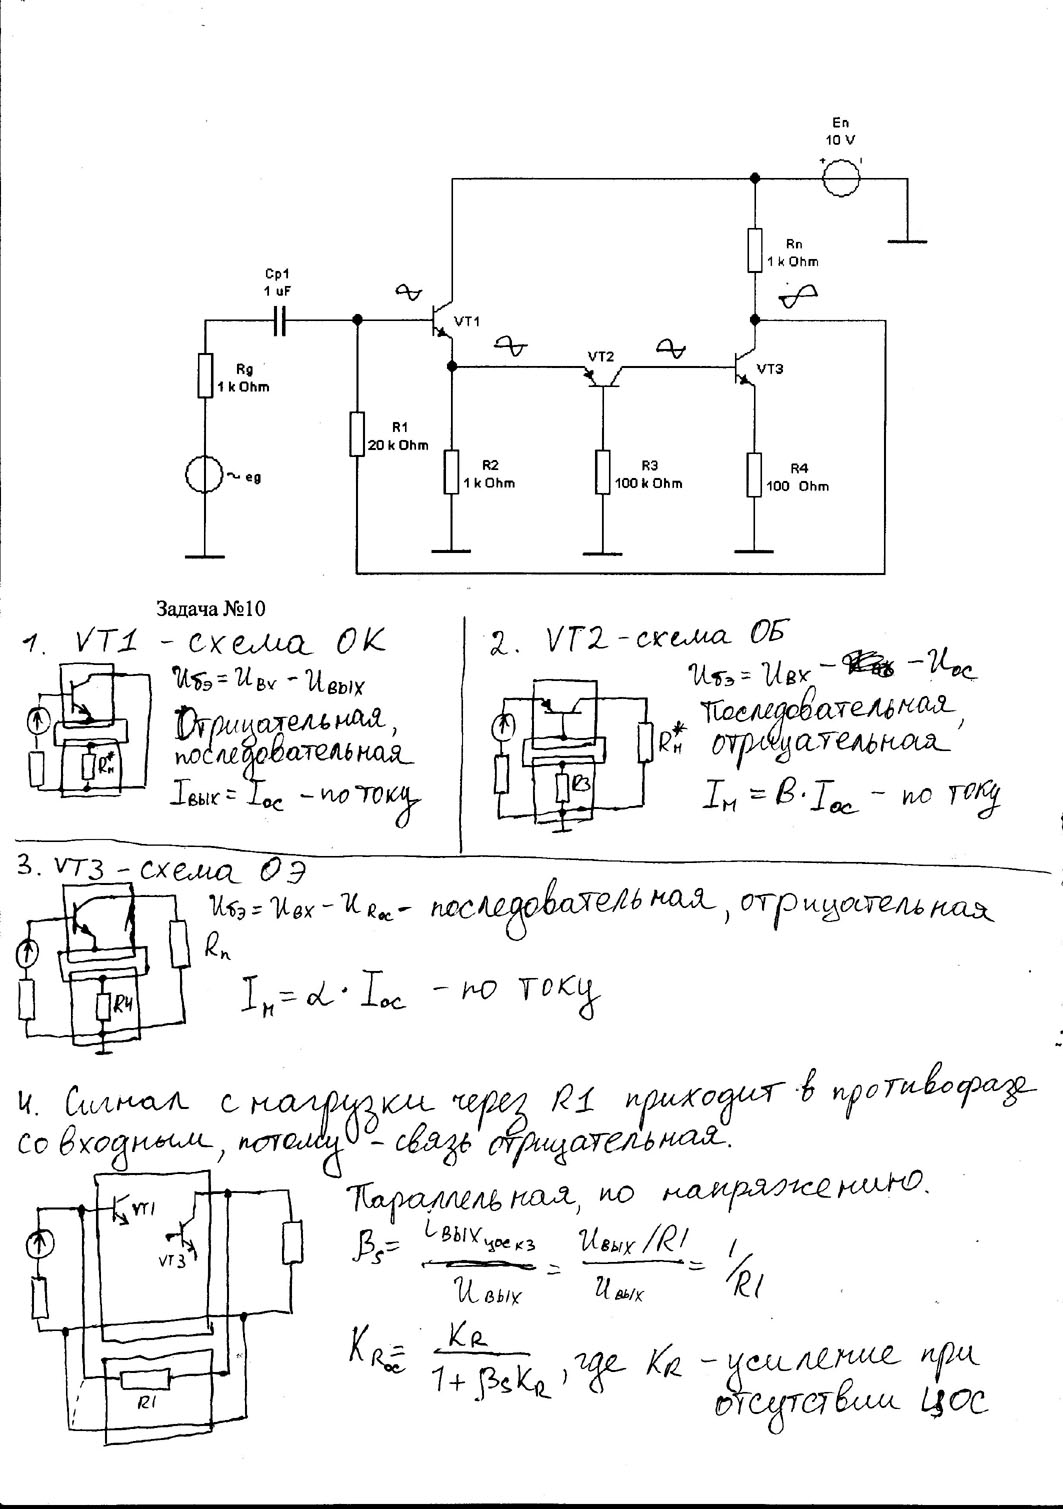 En
10 V
+
Rn
1 k Ohm
Cp1
1 uF
VT1
Rg
1 k Ohm
VT2
VT3
R1
20 k Ohm
~ eg
R2
1 k Ohm
R3
100 k Ohm
R4
100 Ohm
Задача №10
1. VT1 - схема ОК
Uбэ = Uвх - Uвых
Отрицательная,
последовательная
Iвых = Iос - по току
Rн*
2. VT2 - схема ОБ
Uбэ = Uвх - - Uос
Последовательная,
отрицательная
Iн = B · Iос - по току
Rн*
R3
3. VT3 - схема ОЭ
Uбэ = Uвх - URос - последовательная, отрицательная
Rn
Iн = α · Iос - по току
R4
4. Сигнал с нагрузки через R1 приходит в противофазе
со входным, потому - связь отрицательная.
Параллельная, по напряжению.
VT1
VT3
R1
βs = iвых цос кз / Uвых = Uвых/R1 / Uвых = 1/R1
KRос = KR / 1 + βsKR, где KR - усиление при
отсутствии ЦОС